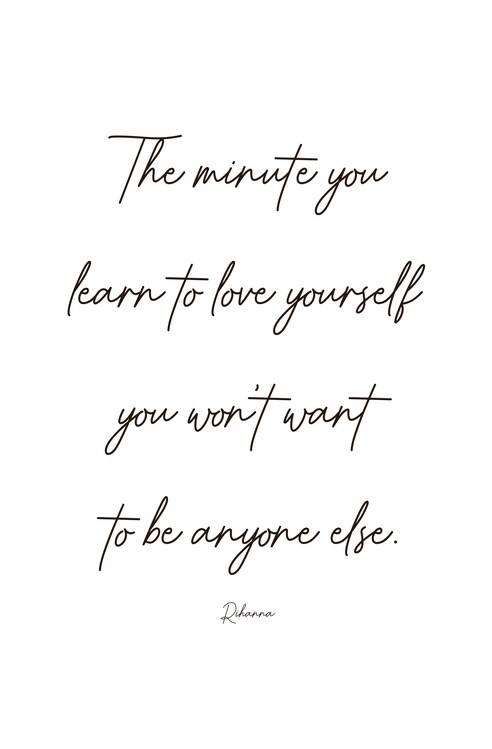 The minute you
learn to love yourself
you won't want
to be anyone else.
Rihanna